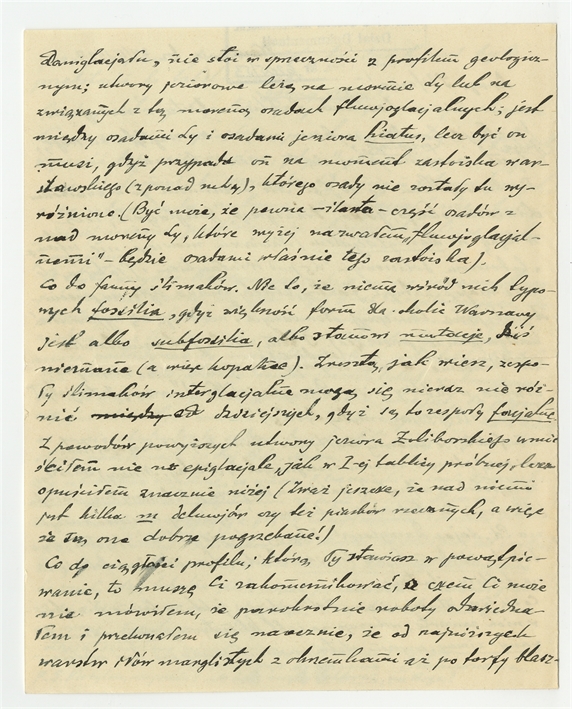 Daniglacjału, nie stoi w sprzeczności z profilem geologicz-
nym; utwory jeziorowe leżą na morenie L4 lub na
związanych z tą moreną osadach fluwjoglacjalnych; jest
między osadami L4 i osadami jeziora hiatus, lecz być on
musi, gdyż przypada on na moment zastoiska war-
szawskiego (z ponad nutą), którego osady nie zostały tu wy-
różnione. (Być może, że pewna część osadów z
nad moreny L4, które wyżej nazwałem „fluwjoglacjal-
nemi" będzie osadami właśnie tego zastoiska).
Co do fauny ślimaków. Nic to, że niema wśród nich typo-
wych fossilia, gdyż większość form z okolic Warszawy
jest albo subfossilia, albo stanowi mutacje, dziś
nieznane (a więc kopalne). Zresztą, jak wiesz, zespo-
ły ślimaków interglacjalne mogą się nieraz nie róż-
nić między od dzisiejszych, gdyż są to zespoły facjalne.
Z powodów powyższych utwory jeziora Żoliborskiego umie-
ściłem nie w epiglacjale, jak w I-ej tablicy próbnej, lecz
opuściłem znacznie niżej (Zważ jeszcze, że nad niemi
jest kilka m deluwjów czy też piasków rzecznych, a więc
są one dobrze pogrzebane!)
Co do ciągłości profilu, którą Ty stawiasz w powątpie-
wanie, to muszę Ci zakomunikować, o czem Ci może
nie mówiłem, że parokrotnie roboty odwiedza-
łem i przekonałem się naocznie, że od najniższych
warstw iłów marglistych z okrzemkami aż po torfy blasz-